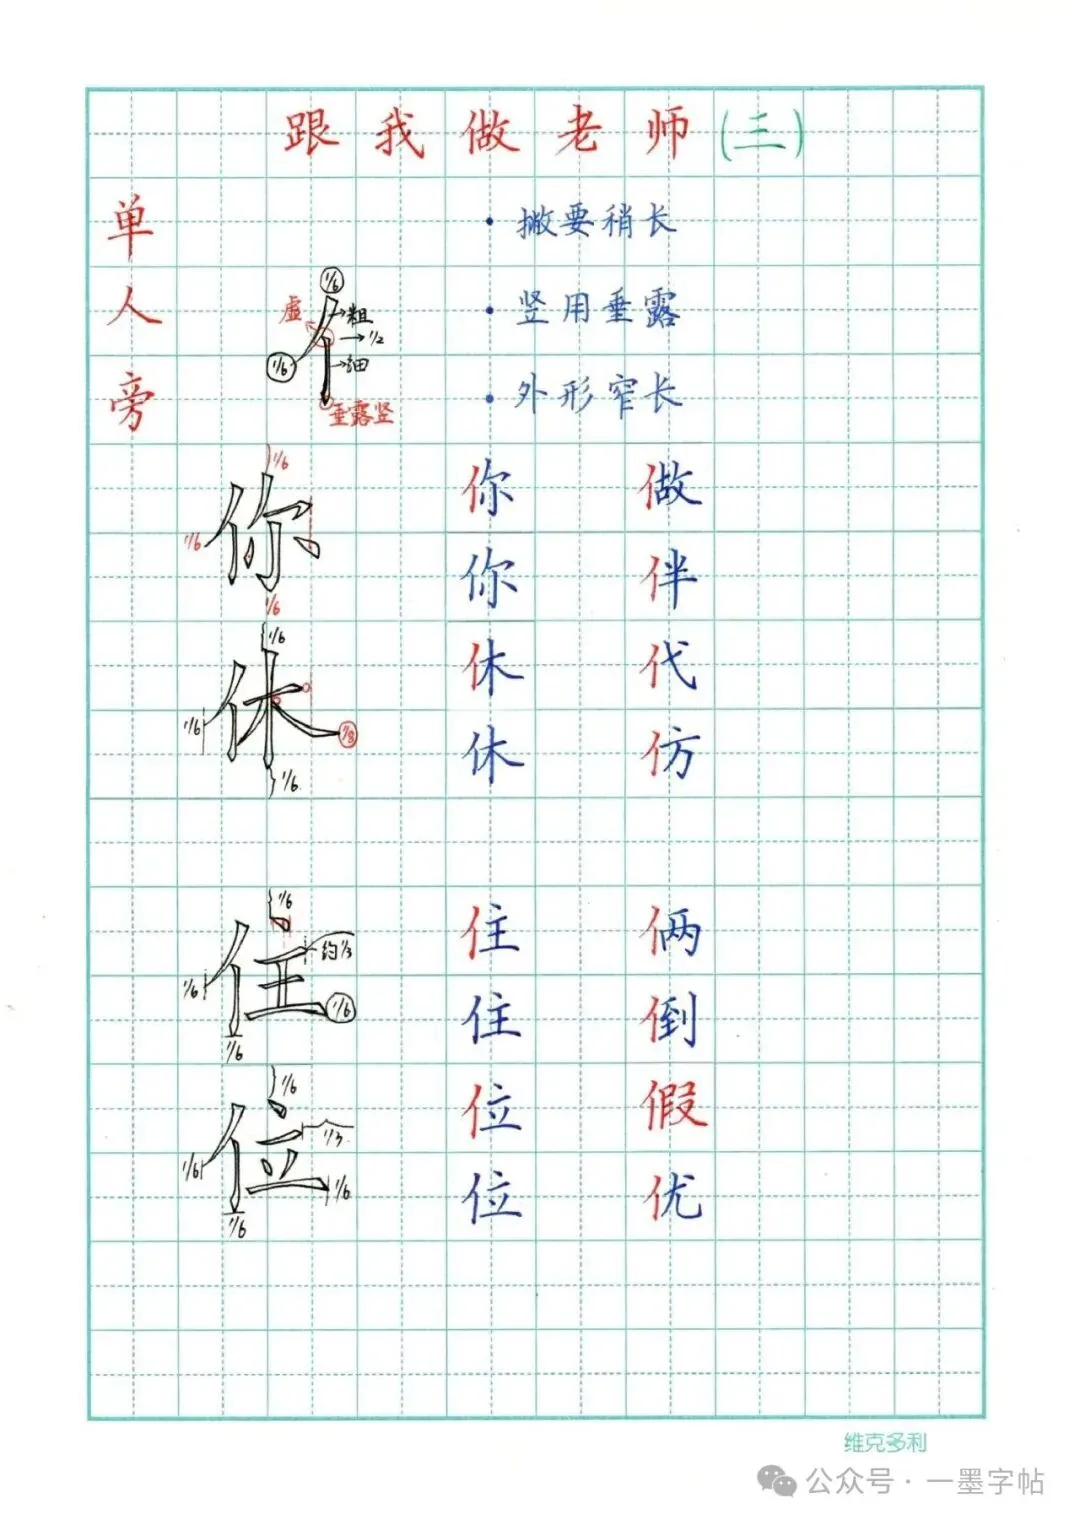 跟我做老师(三)
单人旁
·撇要稍长
·竖用垂露
·外形窄长
1/6
虚
粗
1/2
1/6
细
垂露竖
1/6
你 你 做
1/6
1/6
你 伴
1/6
休 休 代
1/6
1/8
休 仿
1/6
1/6
住 住 俩
约1/3
1/6
1/6
住 倒
1/6
1/6
位 位 假
1/3
1/6
1/6
位 优
1/6
维克多利
公众号·一墨字帖